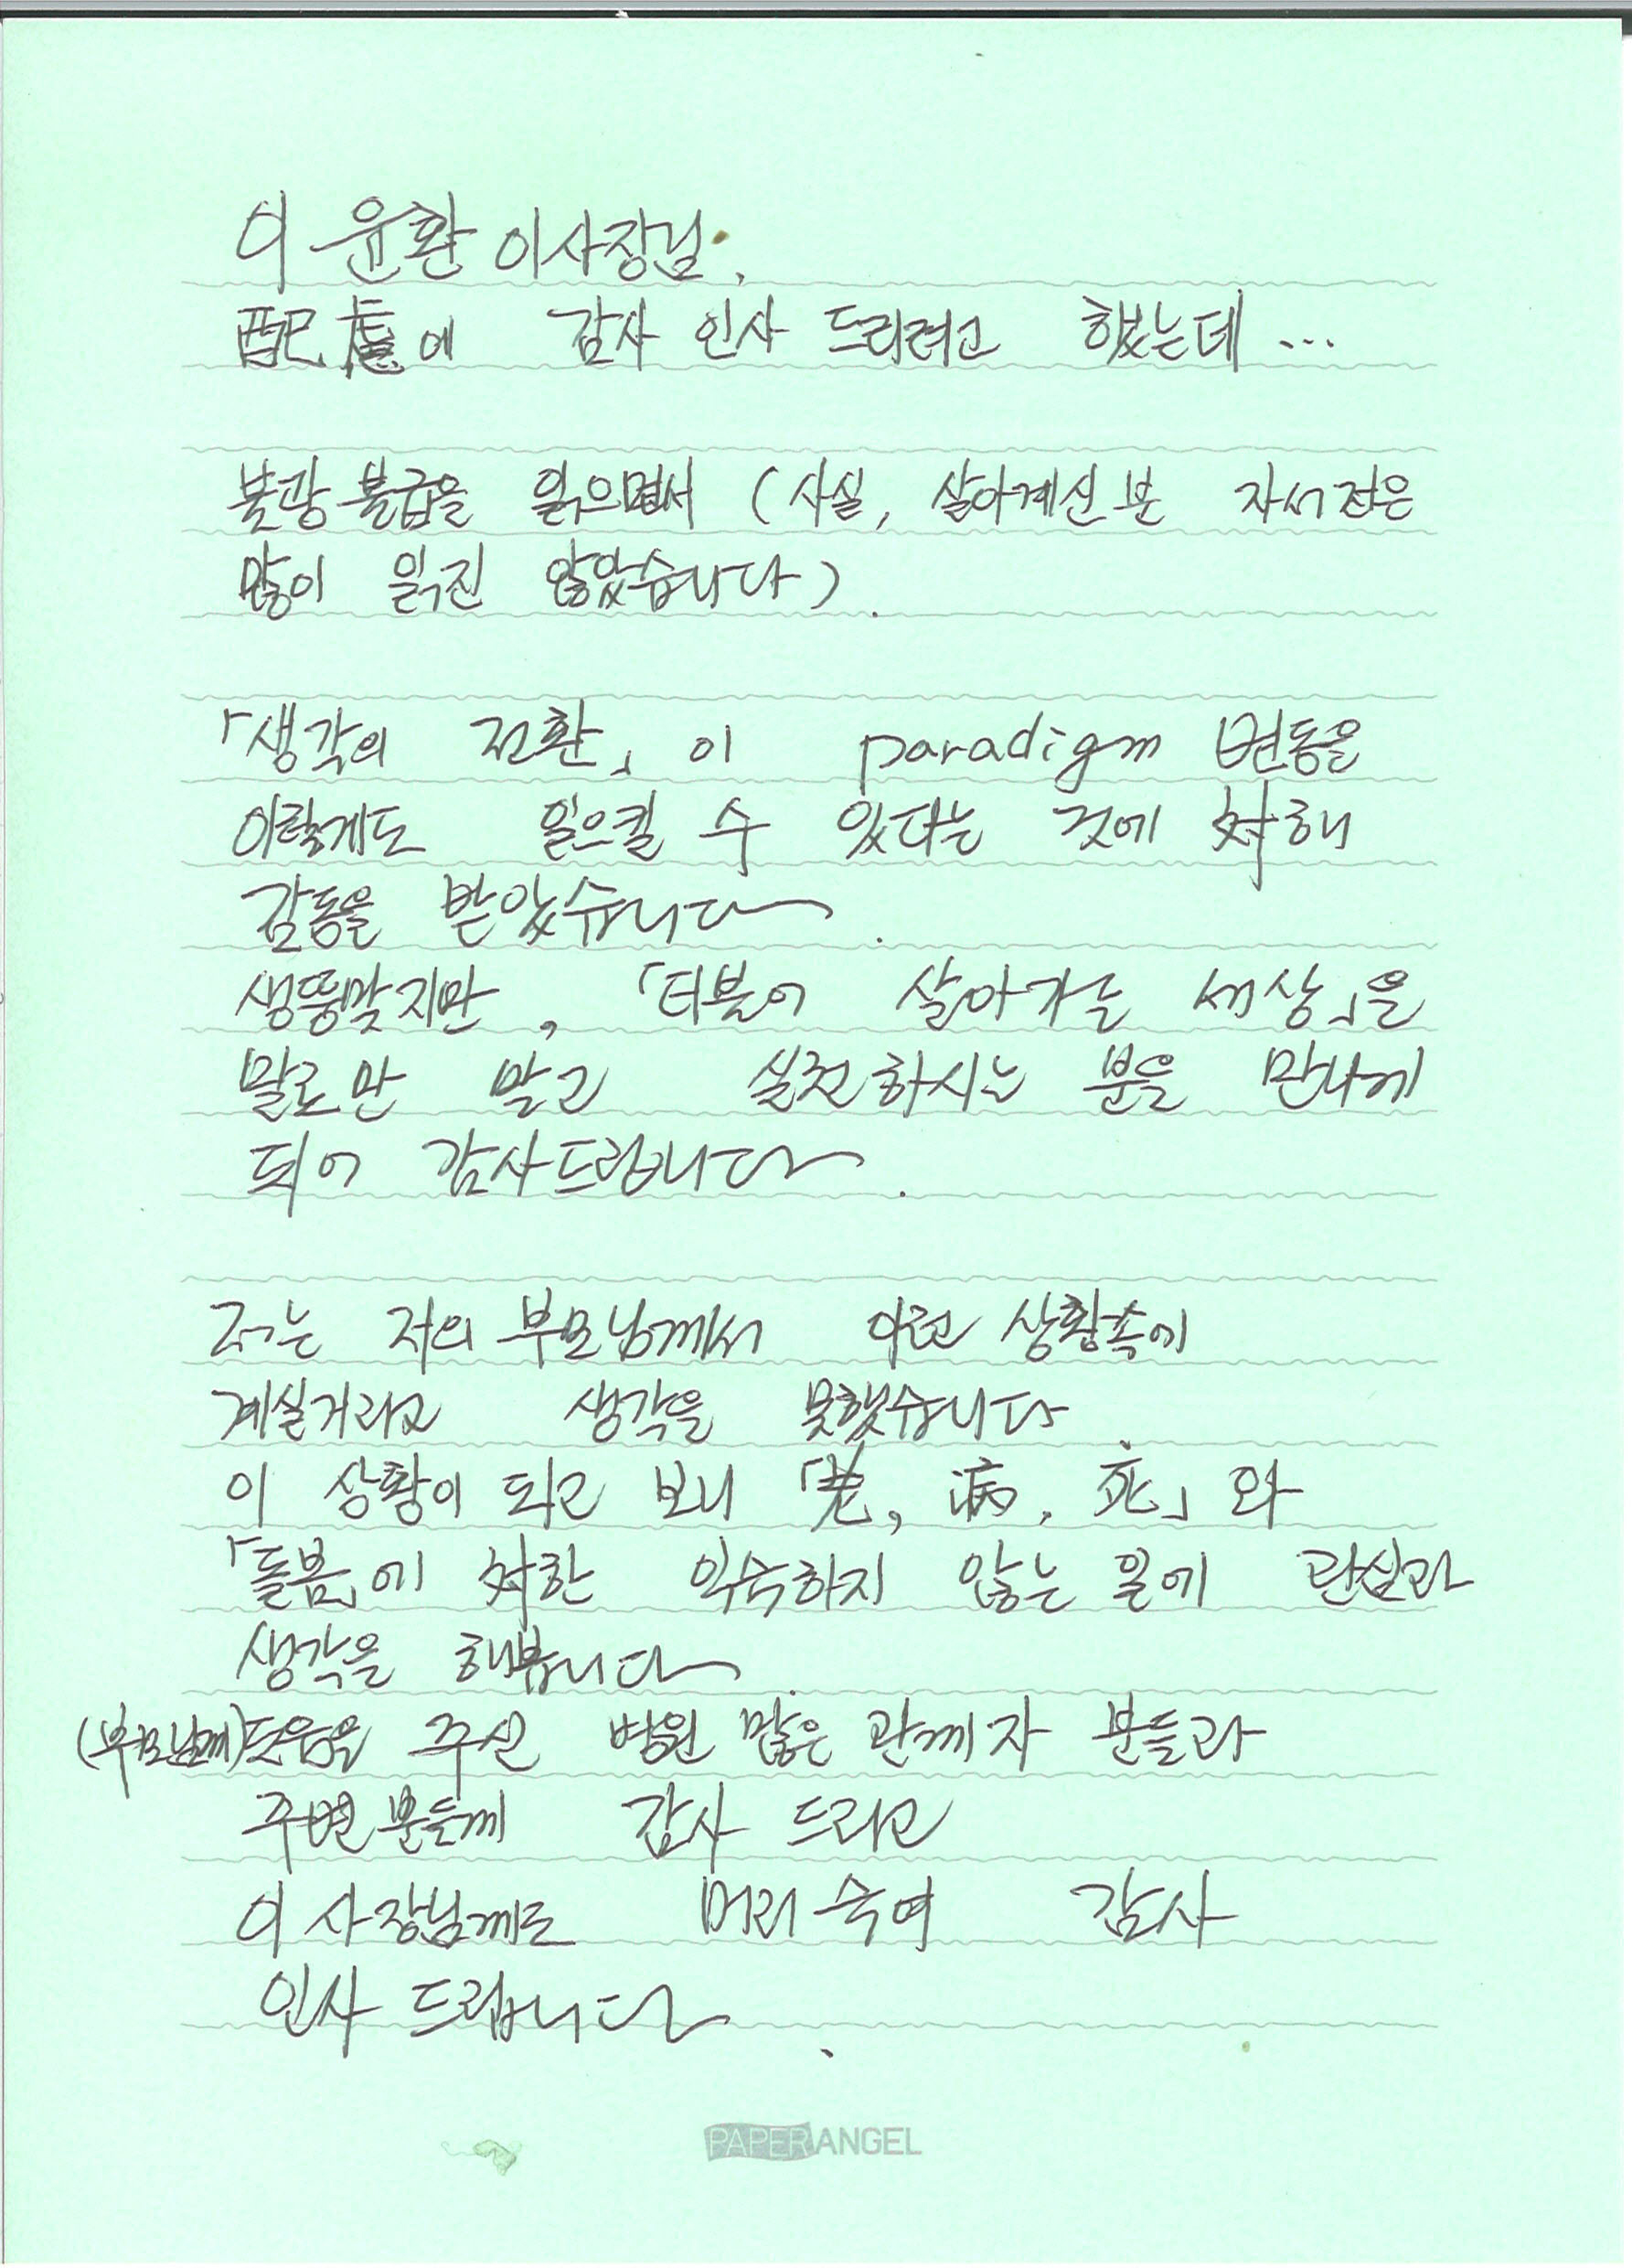 이 윤환 이사장님,
配慮에 감사 인사 드리려고 했는데 ...
불광불급을 읽으면서 (사실, 살아계신 분 자서전은
많이 읽진 않았습니다).
「생각의 전환」이 paradigm 변동을
이렇게도 일으킬 수 있다는 것에 対해
감동을 받았습니다.
생뚱맞지만, 「더불어 살아가는 세상」을
말로만 말고 실천하시는 분을 만나게
되어 감사드립니다.
저는 저의 부모님께서 이런 상황속에
계실거라고 생각을 못했습니다.
이 상황이 되고 보니 「老, 病, 死」와
「돌봄」에 対한 익숙하지 않는 일에 관심과
생각을 해봅니다.
(부모님께)도움을 주신 병원 많은 관께자 분들과
주변분들께 감사 드리고
이사장님께도 머리 숙여 감사
인사 드립니다.
PAPERANGEL